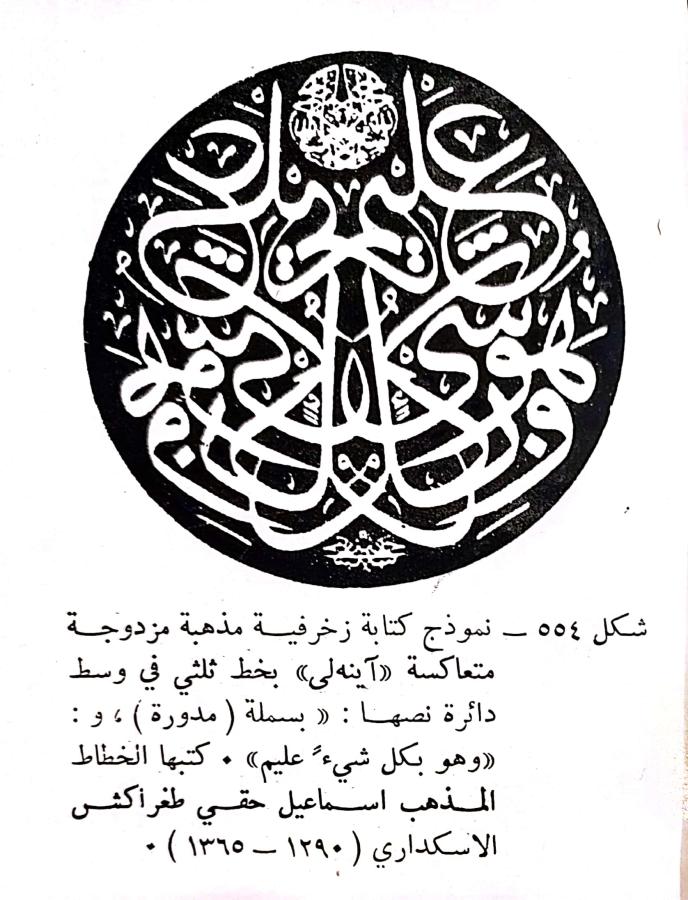 وهو بكل شيء عليم
شكل ٥٥٤ ــ نموذج كتابة زخرفيــة مذهبة مزدوجــة
متعاكسة «آينه‌لى» بخط ثلثي في وسط
دائرة نصهــا : « بسملة ( مدورة ) ، و :
«وهو بكل شيء ً عليم» ٠ كتبها الخطاط
المــذهب اســماعيل حقــي طغراكش
الاسكداري ( ١٢٩٠ ــ ١٣٦٥ ) ٠